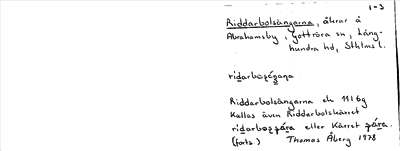 1-3
Riddarbolsängarna, åkrar å
Abrahamsby, Gottröra sn, Lång-
hundra hd, Sthlms l.
Riddarbolsängarna ek 1116g
Kallas även Riddarbolskärret
eller Kärret
(forts) Thomas Åberg 1978